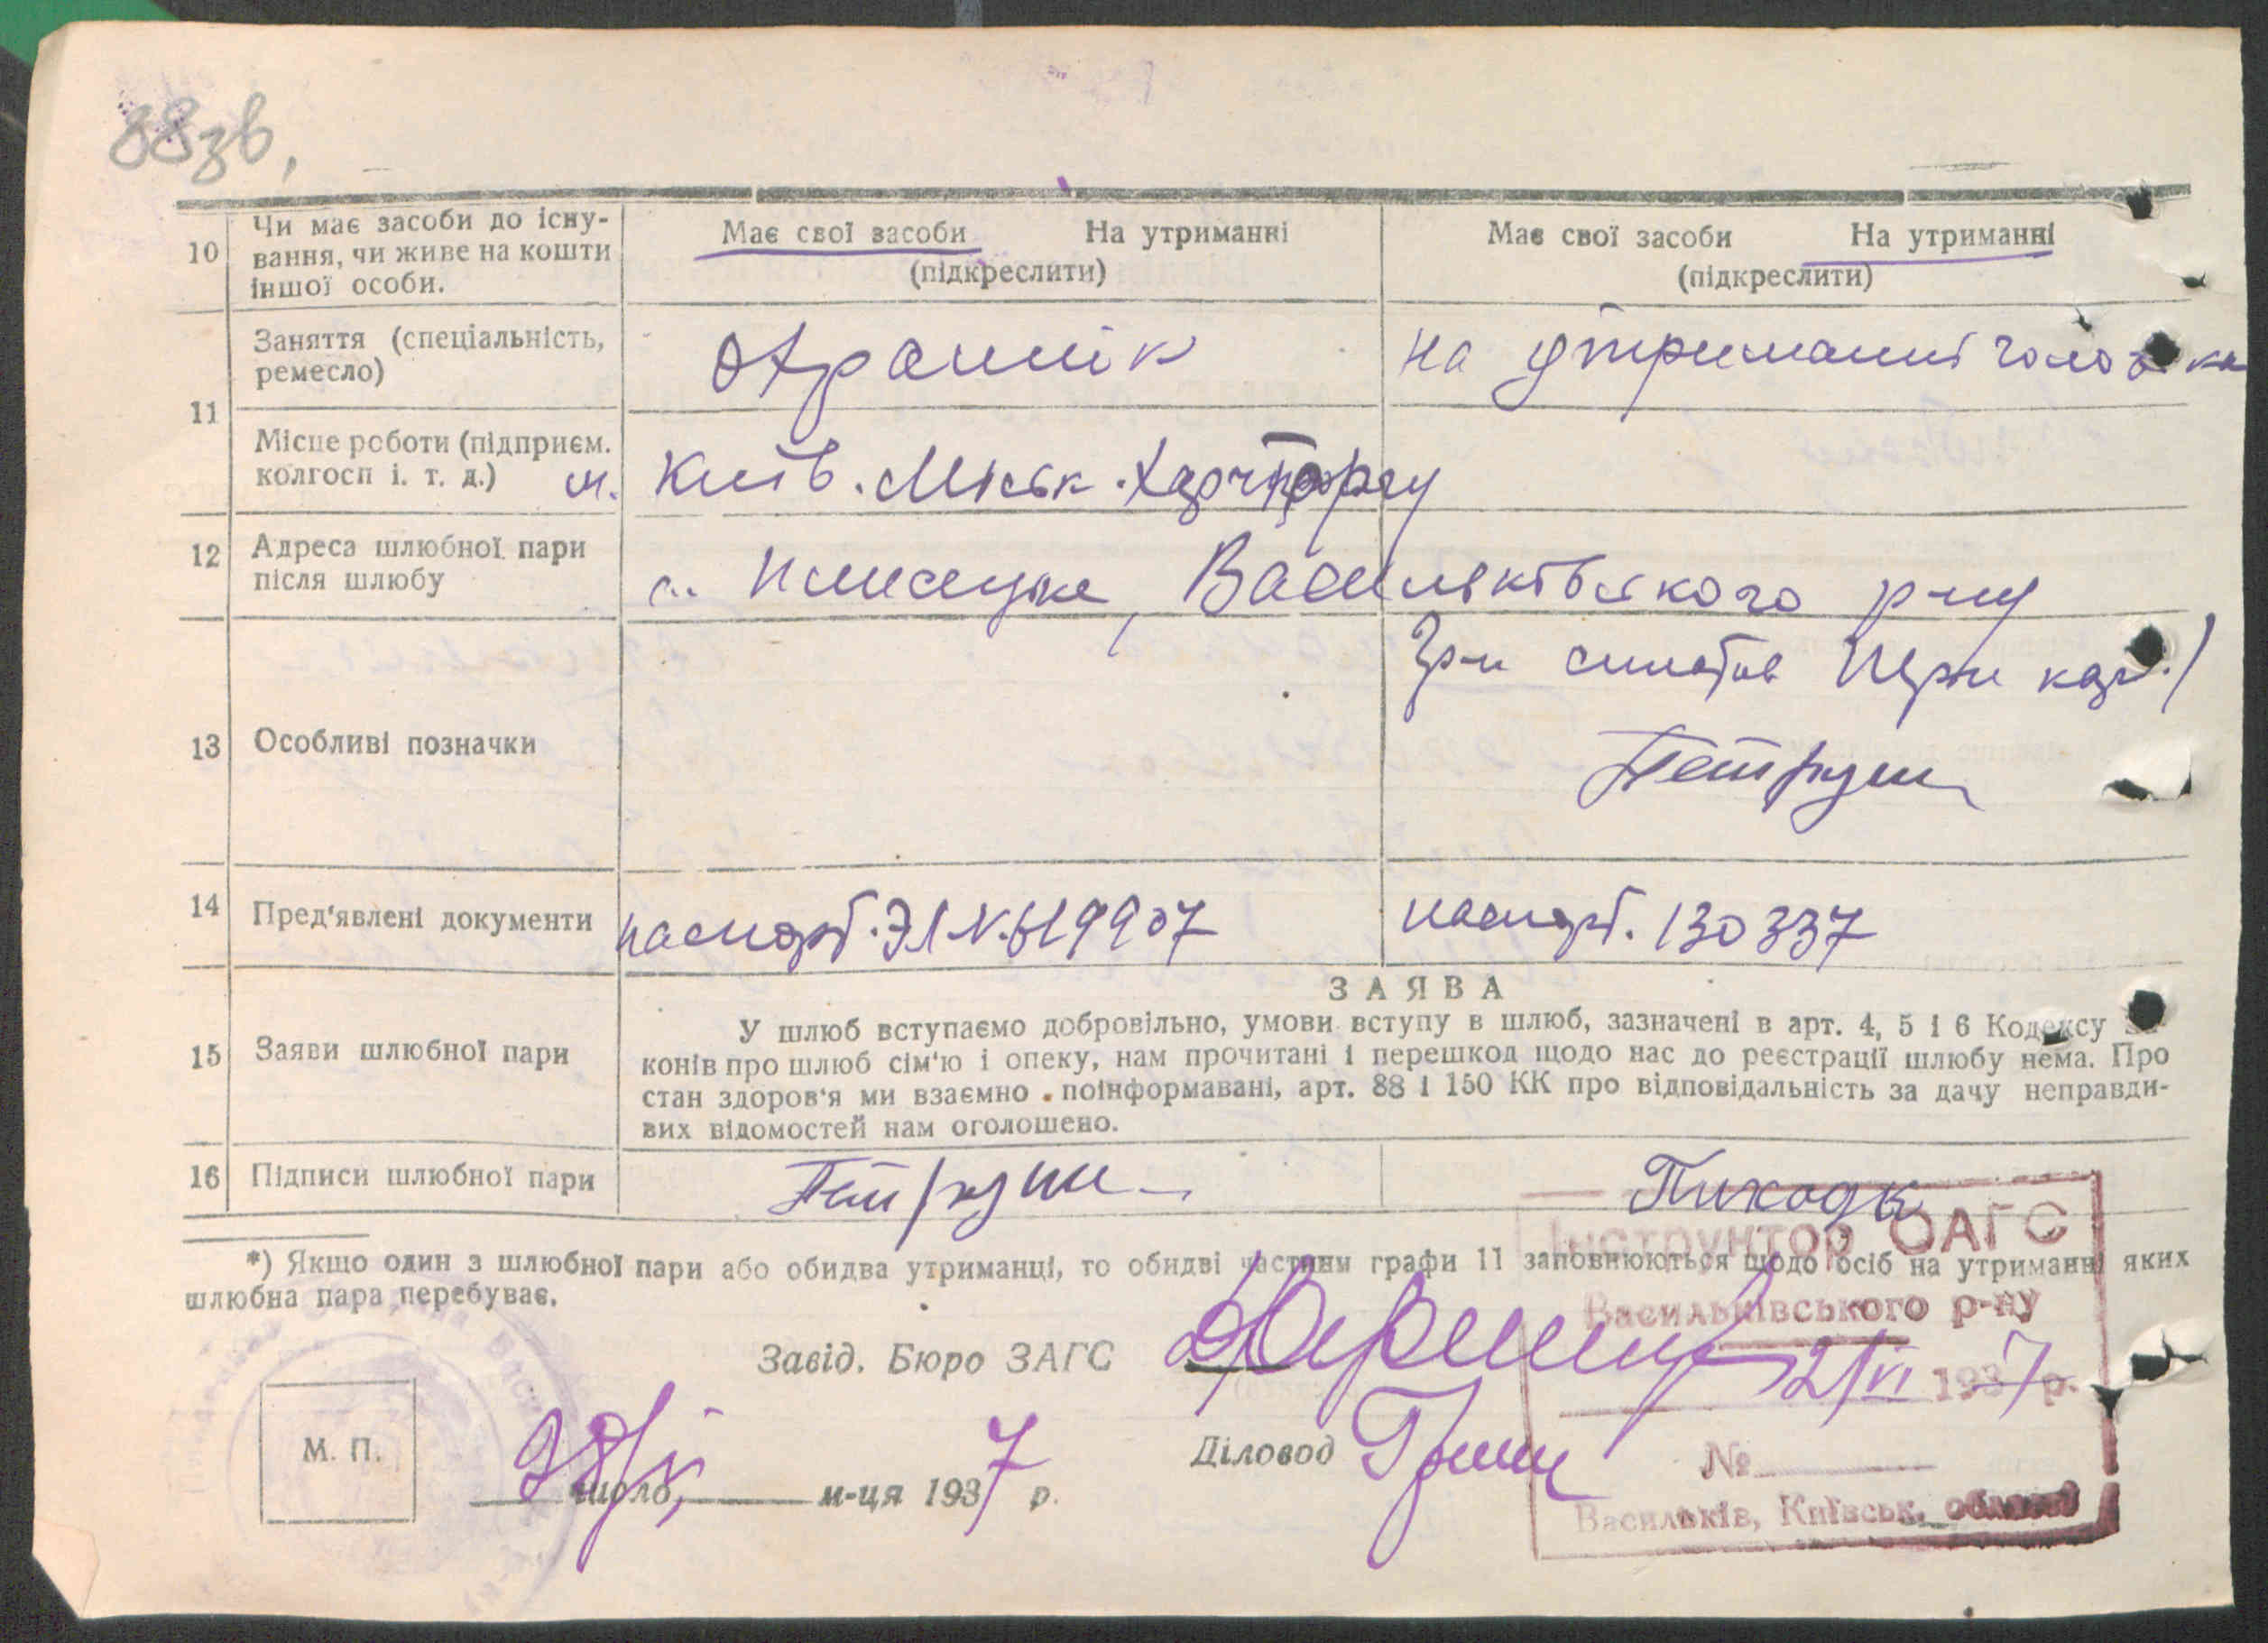 88зв,
10 Чи має засоби до існу-
вання, чи живе на кошти
іншої особи.
Має свої засоби На утриманні
(підкреслити)
Має свої засоби На утриманні
(підкреслити)
11 Заняття (спеціальність,
ремесло)
охраник
на утриманні чоловіка
Місце роботи (підприєм.
колгосп і. т. д.)
м. Київ. Міськ. Харчторгу
12 Адреса шлюбної пари
після шлюбу
с. Плисецьке, Васильківського р-ну
13 Особливі позначки
Петруш
14 Пред'явлені документи
паспорт. ЭЛ №. 619907
паспорт. 130337
15 Заяви шлюбної пари
ЗАЯВА
У шлюб вступаємо добровільно, умови вступу в шлюб, зазначені в арт. 4, 5 і 6 Кодексу
конів про шлюб сім'ю і опеку, нам прочитані і перешкод щодо нас до реєстрації шлюбу нема. Про
стан здоров'я ми взаємно поінформавані, арт. 88 і 150 КК про відповідальність за дачу неправди-
вих відомостей нам оголошено.
16 Підписи шлюбної пари
Петруш
*) Якщо один з шлюбної пари або обидва утриманці, то обидві частини графи 11 заповнюються щодо осіб на утриманні яких
шлюбна пара перебуває.
Інструктор ОАГС
Васильківського р-ну
2/VI 1937 р.
№
Васильків, Київськ. області
Завід. Бюро ЗАГС
Діловод
М. П.
число м-ця 1937 р.